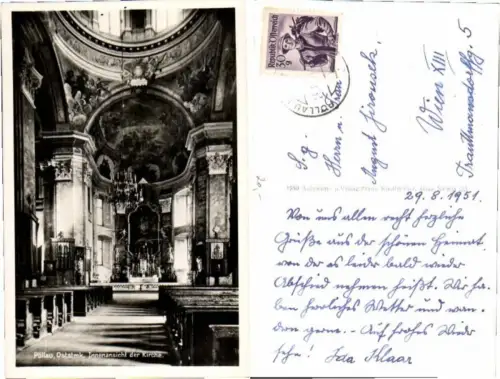 Pöllau, Oststmk, Innenansicht der Kirche
Republik Österreich
30
g
PÖLLAU
S. g.
Herrn u. Frau
August Jirousek,
Wien XIII
Trauttmansdorffg. 5
29.8.1951.
Von uns allen recht herzliche
Grüße aus der schönen Heimat,
von der es leider bald wieder
Abschied nehmen heißt. Wir ha-
ben herrliches Wetter und wan-
dern gerne. - Auf frohes Wieder
sehe! Ida Klaar